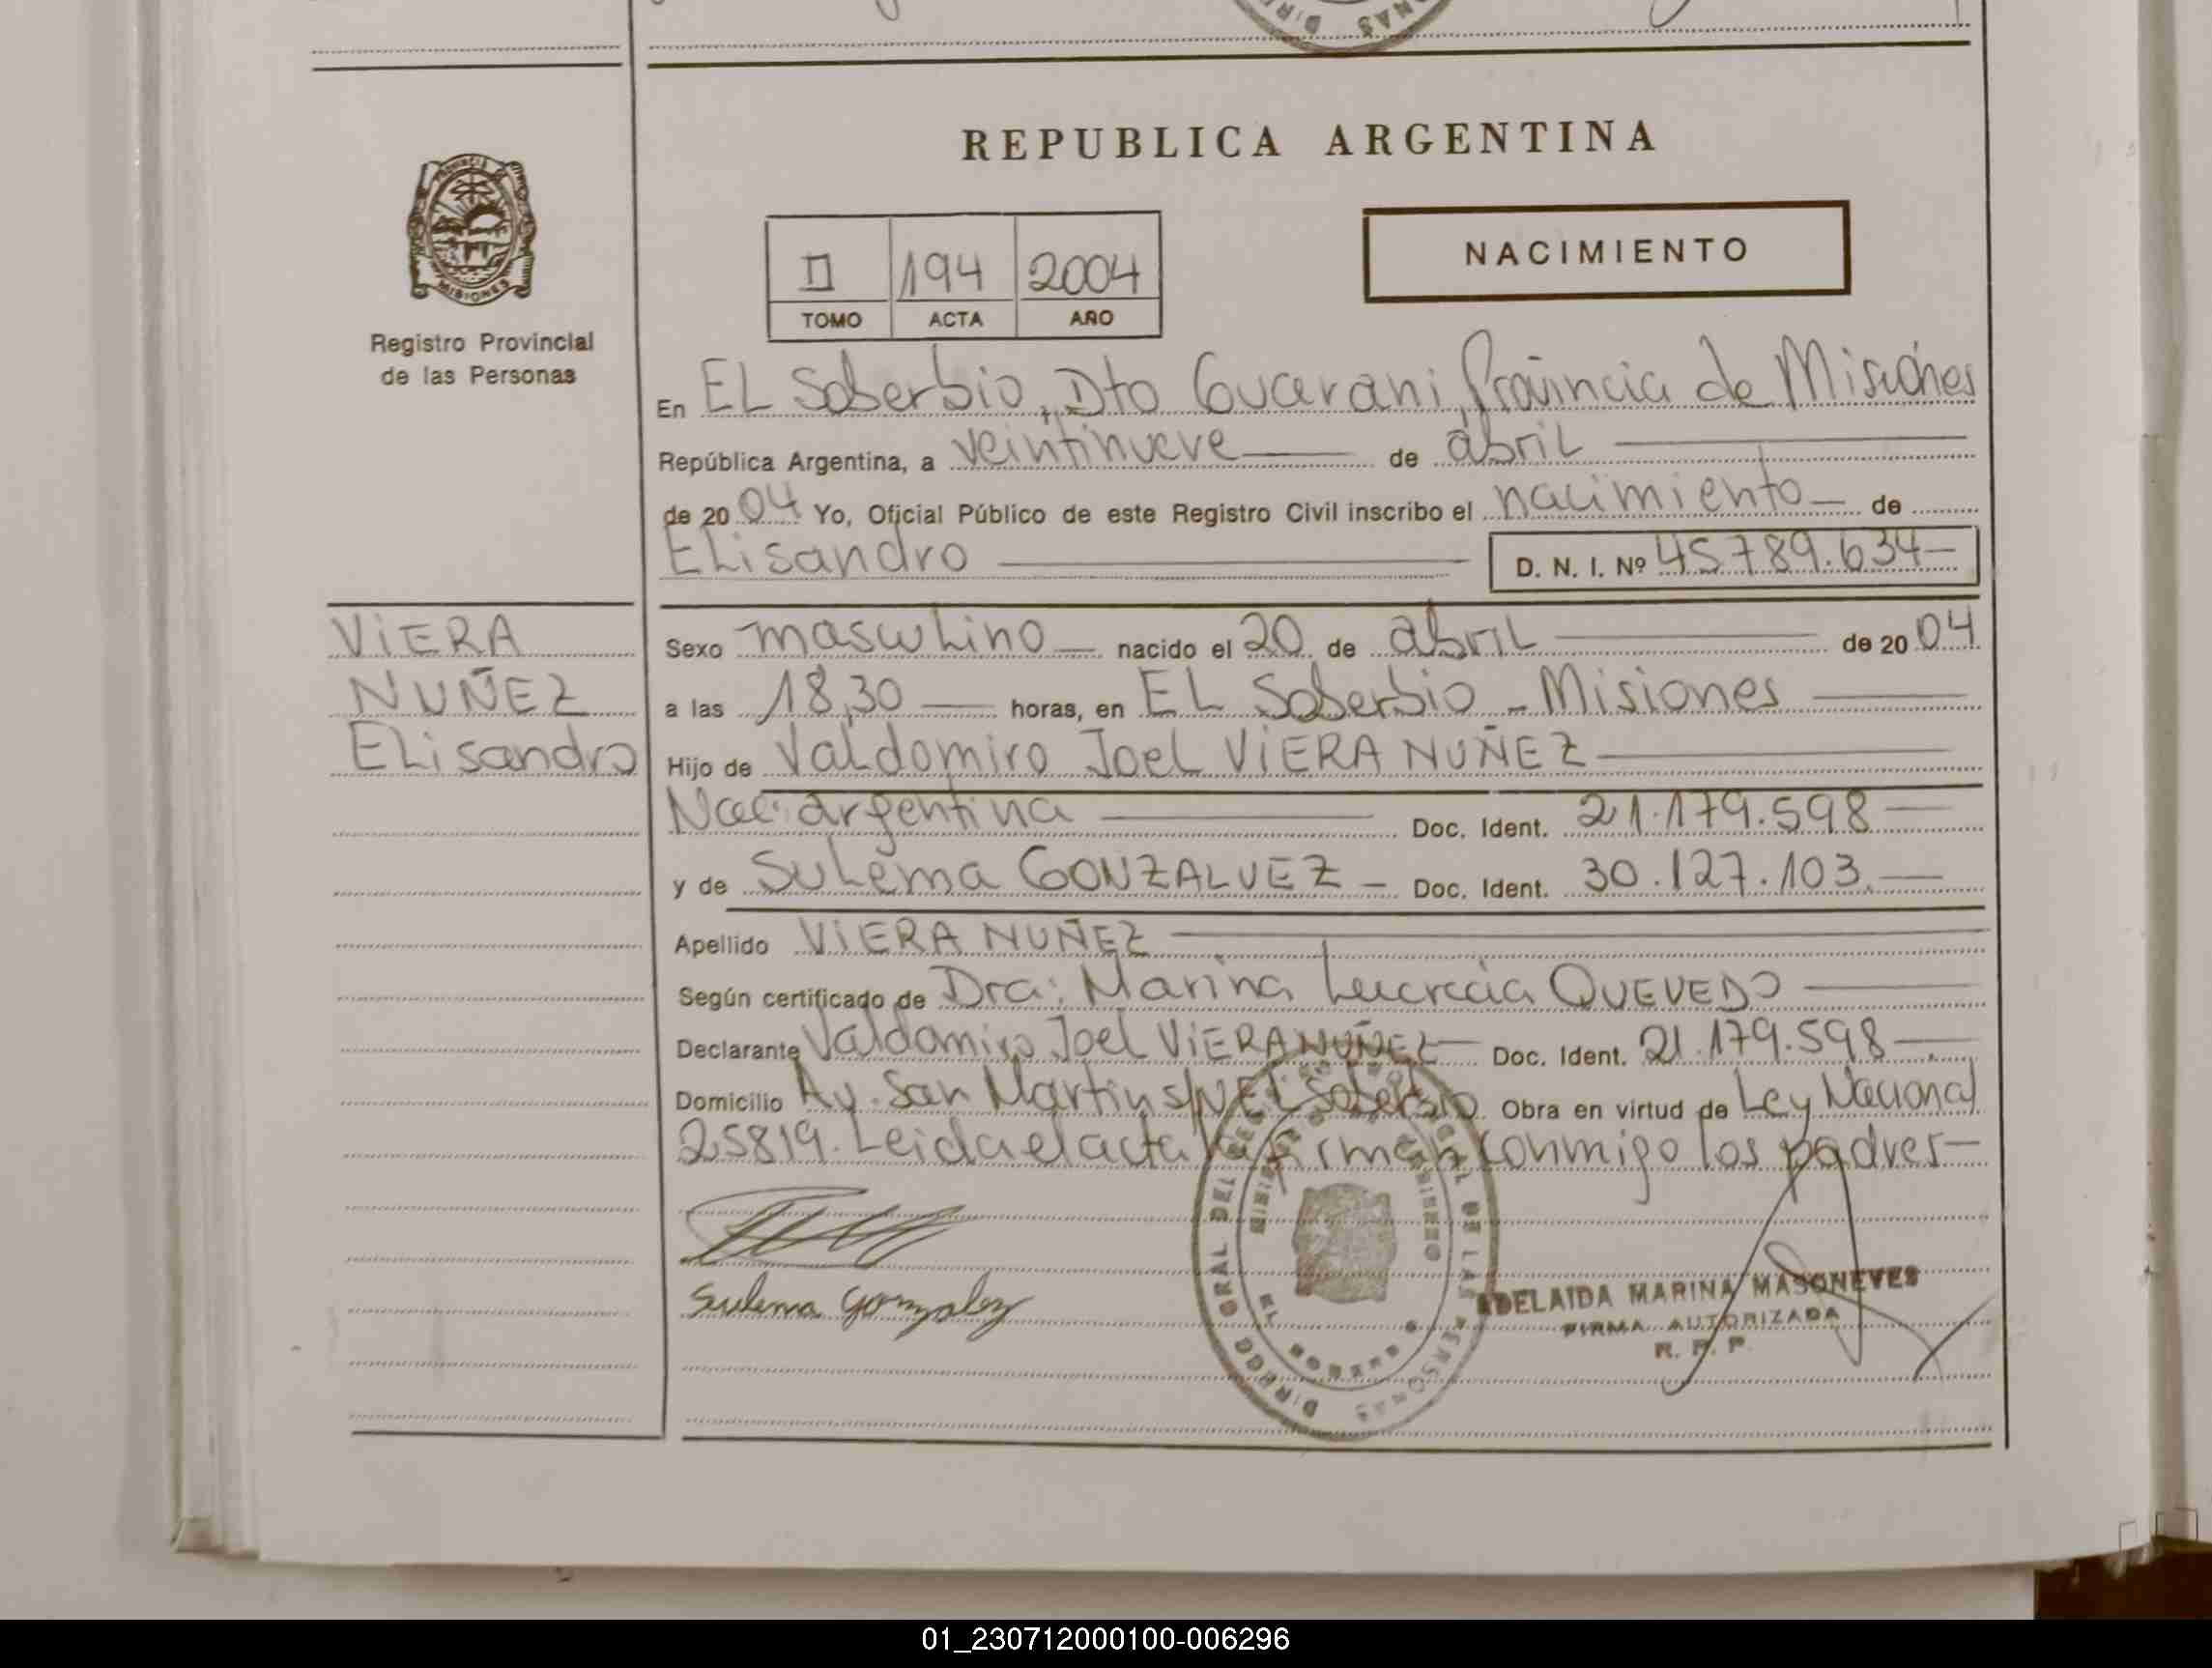 REPUBLICA ARGENTINA
NACIMIENTO
II 194 2004
TOMO ACTA AÑO
PROVINCIA
MISIONES
Registro Provincial
de las Personas
En EL Soberbio, Dto Guarani, Provincia de Misiones
República Argentina, a veintinueve de abril
de 2004 Yo, Oficial Público de este Registro Civil inscribo el nacimiento de
Elisandro D. N. I. Nº 45.789.634
VIERA
NUÑEZ
Elisandro
Sexo masculino nacido el 20 de abril de 2004
a las 18,30 horas, en EL Soberbio - Misiones
Hijo de Valdomiro Joel VIERA NUÑEZ
Nac: argentina Doc. Ident. 21.179.598
y de Sulema GONZALVEZ Doc. Ident. 30.127.103.
Apellido VIERA NUÑEZ
Según certificado de Dra: Marina Lucrecia QUEVEDO
Declarante Valdomiro Joel VIERA NUÑEZ Doc. Ident. 21.179.598
Domicilio Av. San Martin s/N El Soberbio Obra en virtud de Ley Nacional
25819. Leida el acta la firman conmigo los padres
Sulema Gonzalez
ADELAIDA MARINA MASONEVES
FIRMA AUTORIZADA
R. P. P.
01_230712000100-006296